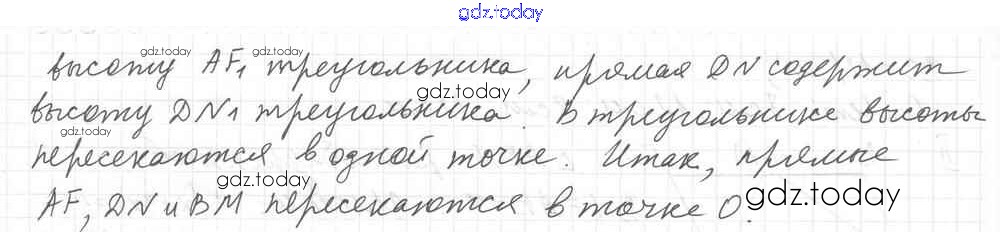 gdz.today
gdz.today gdz.today
высоту AF₁ треугольника, прямая DN содержит
gdz.today gdz.today
высоту DN₁ треугольника. В треугольнике высоты
gdz.today
пересекаются в одной точке. Итак, прямые
gdz.today gdz.today
AF, DN и BM пересекаются в точке O.